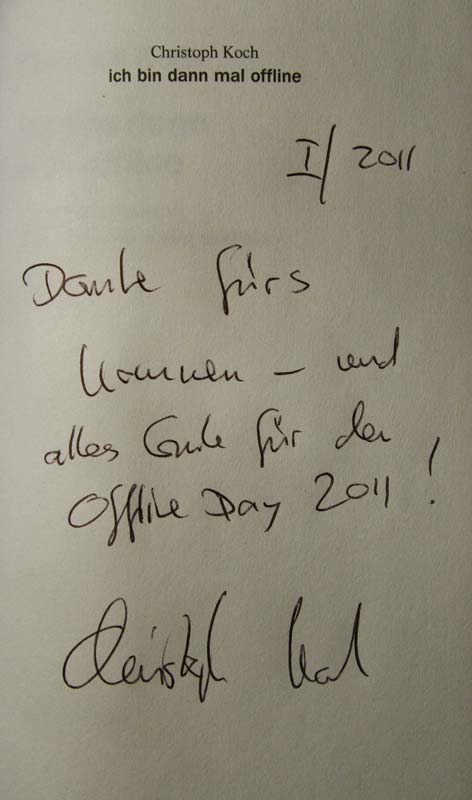 Christoph Koch
ich bin dann mal offline
I/2011
Danke fürs
Kommen – und
alles Gute für den
Offline Day 2011!
Christoph Koch